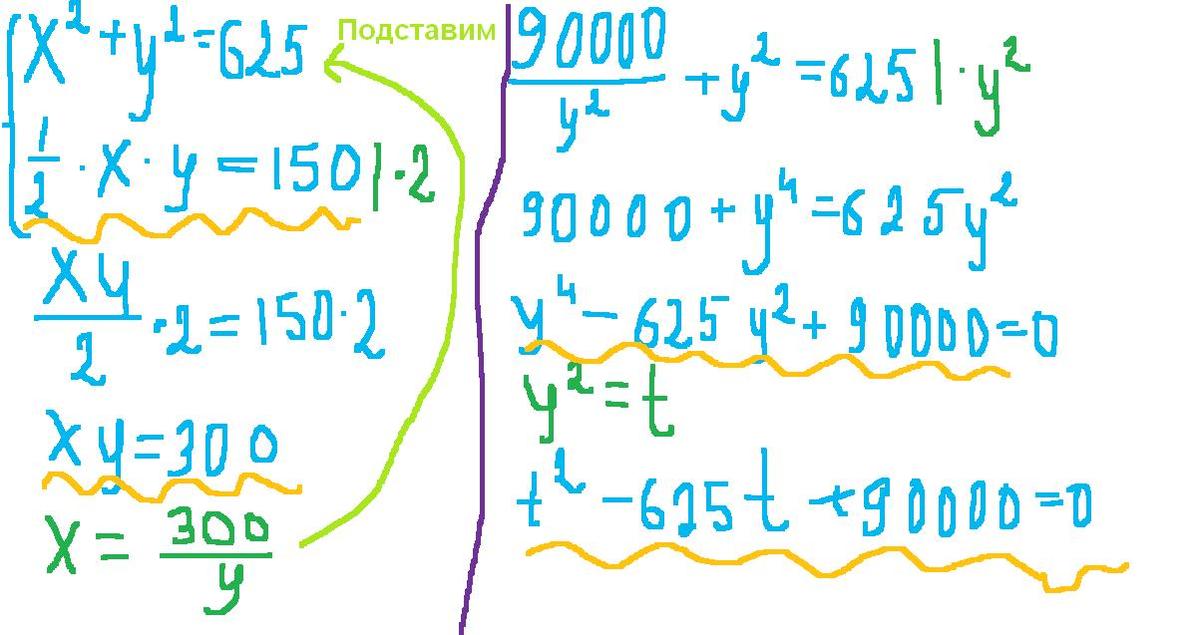 x² + y² = 625
Подставим
1/2 · x · y = 150 | · 2
xy/2 · 2 = 150 · 2
xy = 300
x = 300/y
90000/y² + y² = 625 | · y²
90000 + y⁴ = 625y²
y⁴ − 625y² + 90000 = 0
y² = t
t² − 625t + 90000 = 0